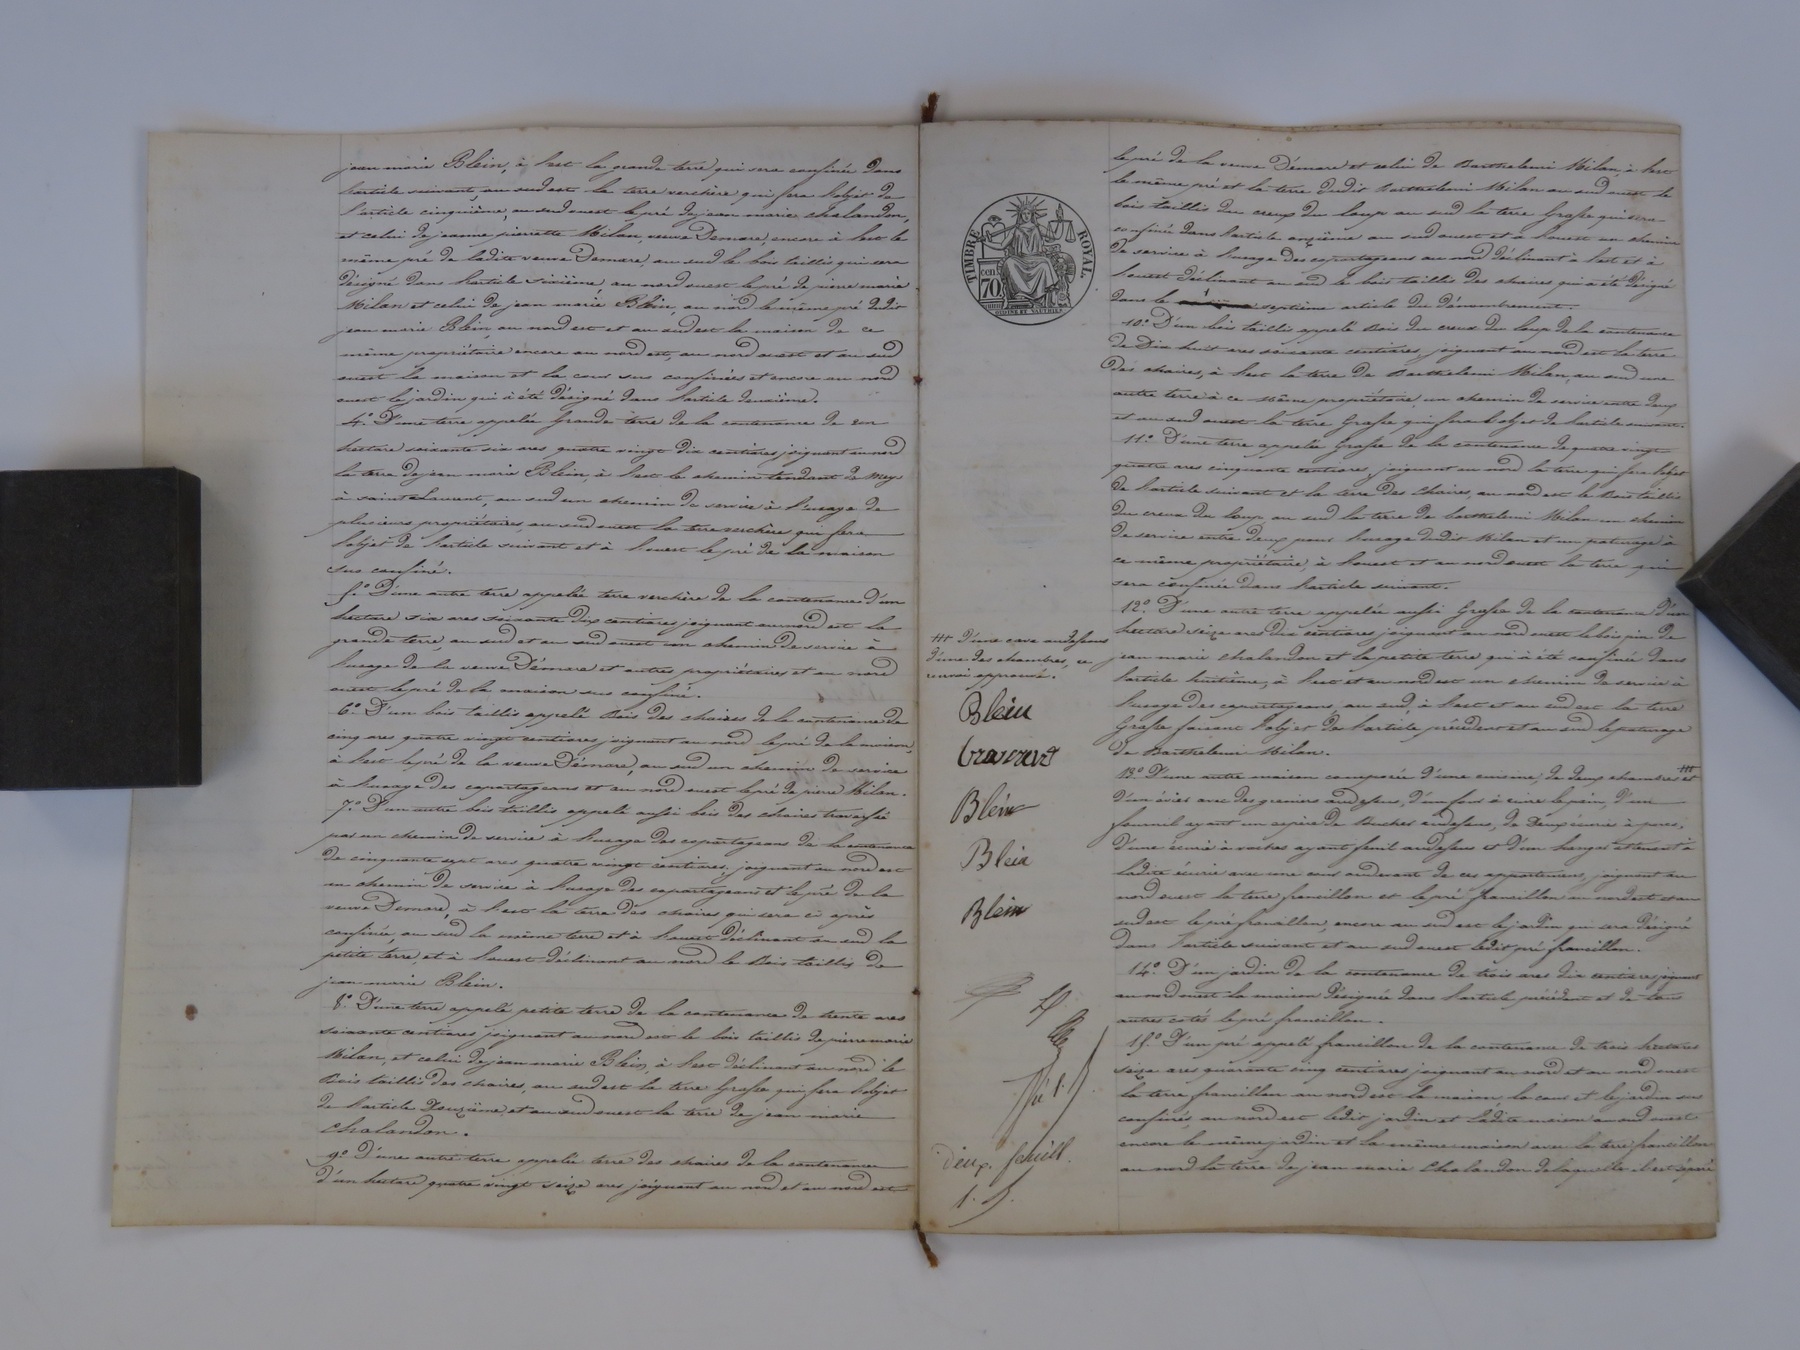 jean marie Blein, à l'est la grande terre qui sera confinée dans
l'article suivant, au sud est la terre verchère qui fera l'objet de
l'article cinquième, au sud ouest le pré de jean marie chalandon,
et celui de jeanne pierrette Milan, veuve Demare, encore à l'est le
même pré de ladite veuve Demare, au sud le bois taillis qui sera
désigné dans l'article sixième, au nord ouest le pré de pierre marie
Milan et celui de jean marie Blein, au nord le même pré dudit
jean marie Blein, au nord est et au sud est la maison de ce
même propriétaire encore au nord est, au nord ouest et au sud
ouest la maison et la cour sus confinées et encore au nord
ouest le jardin qui à été désigné dans l'article deuxième.
4° D'une terre appelée Grande terre de la contenance de un
hectare soixante six ares quatre vingt dix centiares joignant au nord
la terre de jean marie Blein, à l'est le chemin tendant de Meys
à saint Laurent, au sud un chemin de service à l'usage de
plusieurs propriétaires, au sud ouest la terre verchère qui fera
l'objet de l'article suivant et à l'ouest le pré de la maison
sus confiné.
5° D'une autre terre appelée terre verchère de la contenance d'un
hectare six ares soixante dix centiares joignant au nord est la
grande terre, au sud et au sud ouest un chemin de service à
l'usage de la veuve Démare et autres propriétaires et au nord
ouest le pré de la maison sus confiné.
6° D'un bois taillis appelé Bois des chaires de la contenance de
cinq ares quatre vingt centiares joignant au nord le pré de la maison,
à l'est le pré de la veuve Démare, au sud un chemin de service
à l'usage des copartageans et au nord ouest le pré de pierre Milan.
7° D'un autre bois taillis appelé aussi bois des chaires traversé
par un chemin de service à l'usage des copartageans de la contenance
de cinquante sept ares quatre vingt centiares, joignant au nord est
un chemin de service à l'usage des copartageans et le pré de la
veuve Demare, à l'est la terre des chaires qui sera ci après
confinée, au sud la même terre et à l'ouest déclinant au sud la
petite terre, et à l'ouest déclinant au nord le Bois taillis de
jean marie Blein.
8° D'une terre appelé petite terre de la contenance de trente ares
soixante centiares joignant au nord est le bois taillis de pierre marie
Milan, et celui de jean marie Blein, à l'est déclinant au nord le
Bois taillis des chaires, au sud est la terre Grasse qui fera l'objet
de l'article Douzième et au sud ouest la terre de jean marie
Chalandon.
9° D'une autre terre appelée terre des chaires de la contenance
d'un hectare quatre vingt seize ares joignant au nord et au nord est
TIMBRE ROYAL
70
le pré de la veuve Démare et celui de Barthelemi Milan, à l'est
le même pré et la terre dudit Barthelemi Milan au sud ouest le
bois taillis du creux du loup au sud la terre Grasse qui sera
confinée dans l'article onzième au sud ouest et à l'ouest un chemin
de service à l'usage des copartageans au nord déclinant à l'est et à
l'ouest déclinant au sud le bois taillis des chaires qui à été désigné
dans le septième article du démembrement.
10° D'un bois taillis appelé Bois du creux du loup de la contenance
de Dix huit ares soixante centiares, joignant au nord est la terre
Des chaires, à l'est la terre de Barthelemi Milan, au sud une
autre terre à ce même propriétaire, un chemin de service entre deux
et au sud ouest la terre Grasse qui fera l'objet de l'article suivant.
11° D'une terre appelée Grasse de la contenance de quatre vingt
quatre ares cinquante centiares, joignant au nord la terre qui fera l'objet
de l'article suivant et la terre des Chaires, au nord est le Bois taillis
du creux du loup, au sud la terre de barthelemi Milan un chemin
de service entre deux pour l'usage dudit Milan et un paturage à
ce même propriétaire, à l'ouest et au nord ouest la terre qui
sera confinée dans l'article suivant.
12° D'une autre terre appelée aussi Grasse de la contenance d'un
hectare seize ares dix centiares joignant au nord ouest le bois pin de
jean marie chalandon et la petite terre qui à été confinée dans
l'article huitième, à l'est et au nord est un chemin de service à
l'usage des copartageans, au sud, à l'est et au sud est la terre
Grasse faisant l'objet de l'article précédent et au sud le paturage
de Barthelemi Milan.
13° D'une autre maison composée d'une cuisine, de deux chambres et
d'un évier avec des greniers au dessus, d'un four à cuire le pain, d'un
fournil ayant un espère de Bucher au dessus, de Deux écuries à porcs,
d'une écurie à vaches ayant fenil au dessus et d'un hangar attenant à
ladite écurie avec une cour au devant de ces appartemens, joignant au
nord ouest la terre francillon et le pré francillon au nord est et au
sud est le pré francillon, encore au sud est le jardin qui sera désigné
dans l'article suivant et au sud ouest ledit pré francillon.
14° D'un jardin de la contenance de trois ares dix centiares joignant
au nord ouest la maison désignée dans l'article précédent et de tous
autres cotés le pré francillon.
15° D'un pré appelé francillon de la contenance de trois hectares
seize ares quarante cinq centiares joignant au nord et au nord ouest
la terre francillon au nord est la maison la cour et le jardin sus
confinés, au nord est ledit jardin et ladite maison au sud ouest
encore le même jardin et la même maison avec la terre francillon
au nord la terre de jean marie Chalandon de laquelle il est séparé
D'une cave au dessous
d'une des chambres, ce
renvoi approuvé.
Blein
Blein
Blein
Blein
deux. feuill.